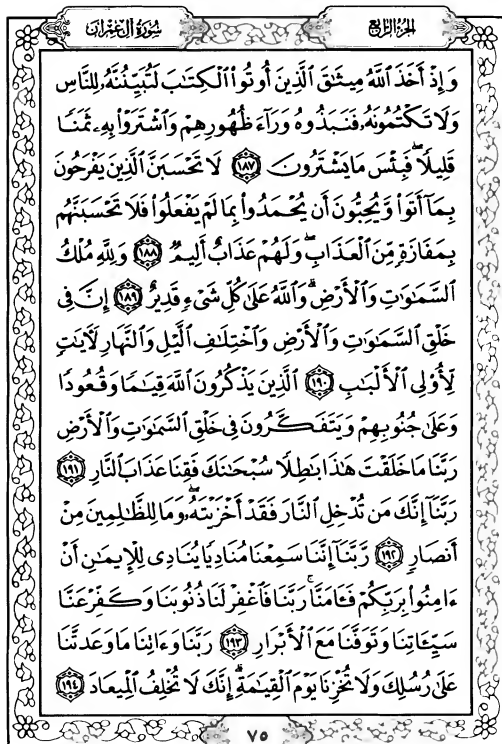 سُورَةُ آلِ عِمْرَانَ
الجُزْءُ الرَّابِعُ
وَإِذْ أَخَذَ ٱللَّهُ مِيثَٰقَ ٱلَّذِينَ أُوتُوا۟ ٱلْكِتَٰبَ لَتُبَيِّنُنَّهُۥ لِلنَّاسِ
وَلَا تَكْتُمُونَهُۥ فَنَبَذُوهُ وَرَآءَ ظُهُورِهِمْ وَٱشْتَرَوْا۟ بِهِۦ ثَمَنًا
قَلِيلًا ۖ فَبِئْسَ مَا يَشْتَرُونَ ١٨٧ لَا تَحْسَبَنَّ ٱلَّذِينَ يَفْرَحُونَ
بِمَآ أَتَوا۟ وَّيُحِبُّونَ أَن يُحْمَدُوا۟ بِمَا لَمْ يَفْعَلُوا۟ فَلَا تَحْسَبَنَّهُم
بِمَفَازَةٍ مِّنَ ٱلْعَذَابِ ۖ وَلَهُمْ عَذَابٌ أَلِيمٌ ١٨٨ وَلِلَّهِ مُلْكُ
ٱلسَّمَٰوَٰتِ وَٱلْأَرْضِ ۗ وَٱللَّهُ عَلَىٰ كُلِّ شَىْءٍ قَدِيرٌ ١٨٩ إِنَّ فِى
خَلْقِ ٱلسَّمَٰوَٰتِ وَٱلْأَرْضِ وَٱخْتِلَٰفِ ٱلَّيْلِ وَٱلنَّهَارِ لَءَايَٰتٍ
لِّأُو۟لِى ٱلْأَلْبَٰبِ ١٩٠ ٱلَّذِينَ يَذْكُرُونَ ٱللَّهَ قِيَٰمًا وَقُعُودًا
وَعَلَىٰ جُنُوبِهِمْ وَيَتَفَكَّرُونَ فِى خَلْقِ ٱلسَّمَٰوَٰتِ وَٱلْأَرْضِ
رَبَّنَا مَا خَلَقْتَ هَٰذَا بَٰطِلًا سُبْحَٰنَكَ فَقِنَا عَذَابَ ٱلنَّارِ ١٩١
رَبَّنَآ إِنَّكَ مَن تُدْخِلِ ٱلنَّارَ فَقَدْ أَخْزَيْتَهُۥ ۖ وَمَا لِلظَّٰلِمِينَ مِنْ
أَنصَارٍ ١٩٢ رَّبَّنَآ إِنَّنَا سَمِعْنَا مُنَادِيًا يُنَادِى لِلْإِيمَٰنِ أَنْ
ءَامِنُوا۟ بِرَبِّكُمْ فَـَٔامَنَّا ۚ رَبَّنَا فَٱغْفِرْ لَنَا ذُنُوبَنَا وَكَفِّرْ عَنَّا
سَيِّـَٔاتِنَا وَتَوَفَّنَا مَعَ ٱلْأَبْرَارِ ١٩٣ رَبَّنَا وَءَاتِنَا مَا وَعَدتَّنَا
عَلَىٰ رُسُلِكَ وَلَا تُخْزِنَا يَوْمَ ٱلْقِيَٰمَةِ ۗ إِنَّكَ لَا تُخْلِفُ ٱلْمِيعَادَ ١٩٤
٧٥